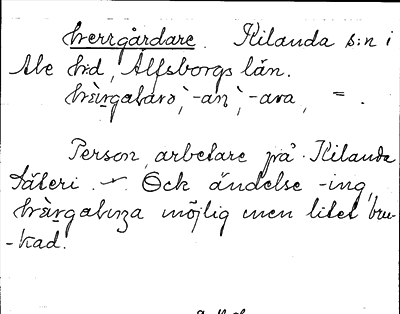 herrgårdare. Kilanda s:n i
Ale h:d, Älfsborgs län.
-an, -ara, = .
Person, arbetare på Kilanda
säteri. Ock ändelse -ing
möjlig men litet bru-
-kad.